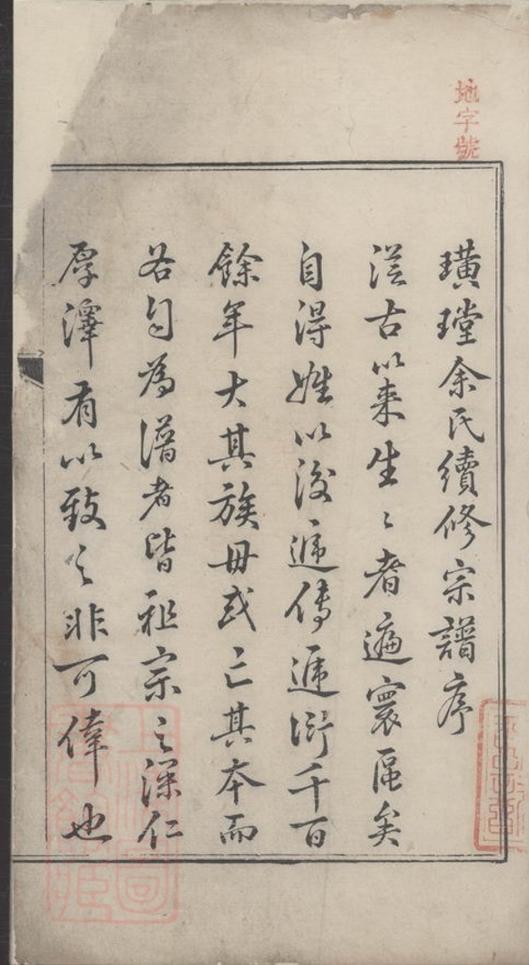 地字號
璜瑝余氏續修宗譜序
從古以來生〻者遍寰區矣
自得姓以後遞傳遞衍千百
餘年大其族毋或亡其本而
各自為譜者皆祖宗之深仁
厚澤有以致之非可倖也